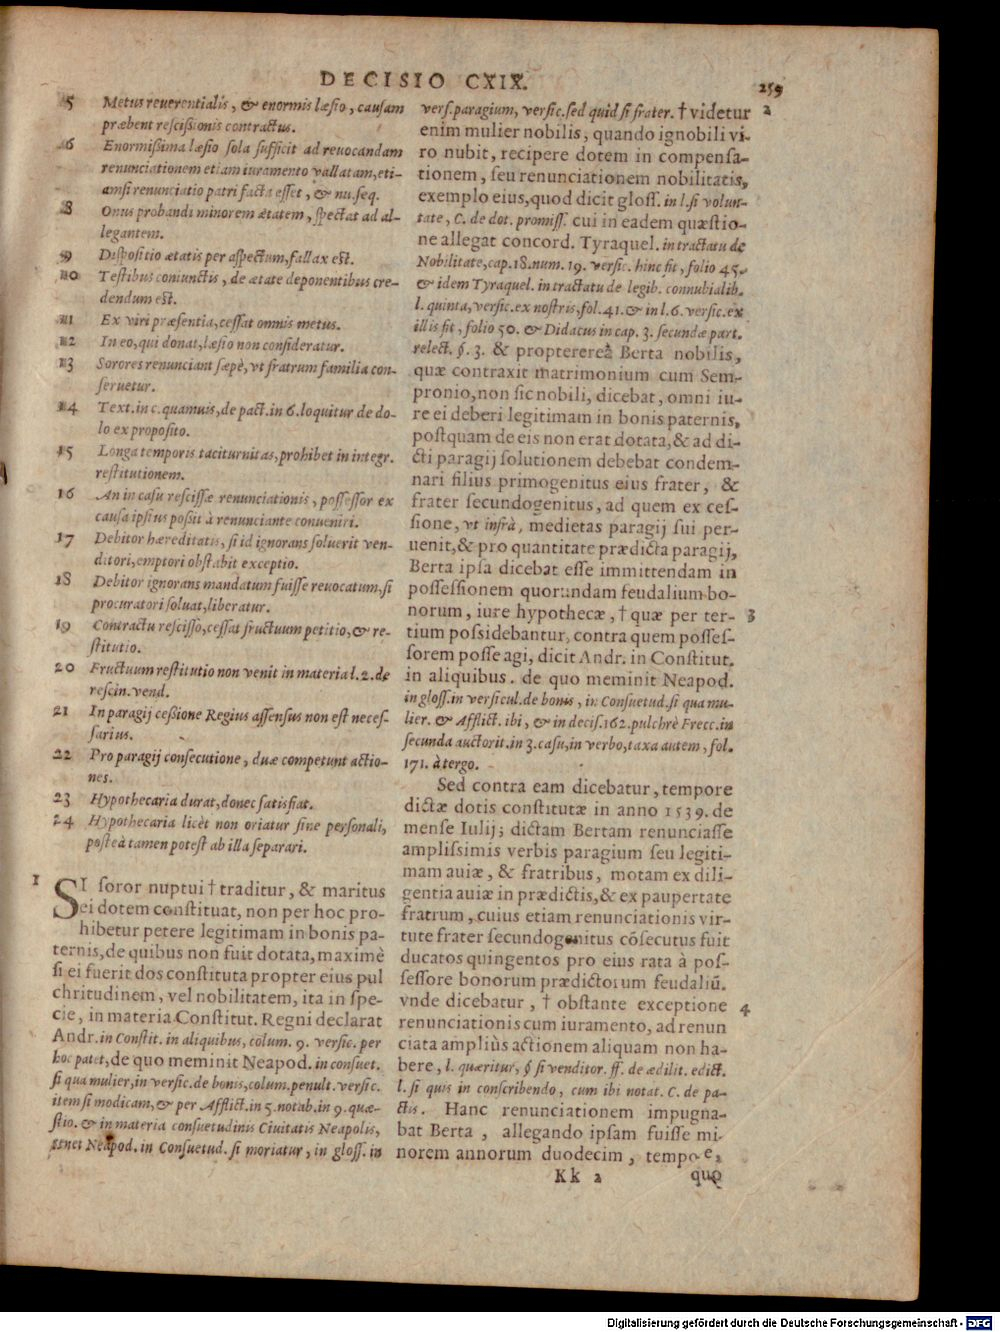 DECISIO CXIX.
259
5 Metus reuerentialis, & enormis læsio, causam
præbent rescissionis contractus.
6 Enormissima læsio sola sufficit ad reuocandam
renunciationem etiam iuramento vallatam, eti-
amsi renunciatio patri facta esset, & nu. seq.
8 Onus probandi minorem ætatem, spectat ad al-
legantem.
9 Dispositio ætatis per aspectum, fallax est.
10 Testibus coniunctis, de ætate deponentibus cre-
dendum est.
11 Ex viri præsentia, cessat omnis metus.
12 In eo, qui donat, læsio non consideratur.
13 Sorores renunciant sæpè, vt fratrum familia con-
seruetur.
14 Text. in c. quamuis, de pact. in 6. loquitur de do-
lo ex proposito.
15 Longa temporis taciturnitas, prohibet in integr.
restitutionem.
16 An in casu rescissæ renunciationis, possessor ex
causa ipsius possit à renunciante conueniri.
17 Debitor hæreditatis, si id ignorans soluerit ven-
ditori, emptori obstabit exceptio.
18 Debitor ignorans mandatum fuisse reuocatum, si
procuratori soluat, liberatur.
19 Contractu rescisso, cessat fructuum petitio, & re-
stitutio.
20 Fructuum restitutio non venit in materia l. 2. de
rescin. vend.
21 In paragij cessione Regius assensus non est neces-
sarius.
22 Pro paragij consecutione, duæ competunt actio-
nes.
23 Hypothecaria durat, donec satisfiat.
24 Hypothecaria licèt non oriatur sine personali,
posteà tamen potest ab illa separari.
1 SI soror nuptui † traditur, & maritus
ei dotem constituat, non per hoc pro-
hibetur petere legitimam in bonis pa-
ternis, de quibus non fuit dotata, maximè
si ei fuerit dos constituta propter eius pul
chritudinem, vel nobilitatem, ita in spe-
cie, in materia Constitut. Regni declarat
Andr. in Constit. in aliquibus, colum. 9. versic. per
hoc patet, de quo meminit Neapod. in consuet.
si qua mulier, in versic. de bonis, colum. penult. versic.
item si modicam, & per Afflict. in 5. notab. in 9. quæ-
stio. & in materia consuetudinis Ciuitatis Neapolis,
tenet Neapod. in Consuetud. si moriatur, in gloss. in
vers. paragium, versic. sed quid si frater. † videtur 2
enim mulier nobilis, quando ignobili vi-
ro nubit, recipere dotem in compensa-
tionem, seu renunciationem nobilitatis,
exemplo eius, quod dicit gloss. in l. si volun-
tate, C. de dot. promiss. cui in eadem quæstio-
ne allegat concord. Tyraquel. in tractatu de
Nobilitate, cap. 18. num. 19. versic. hinc fit, folio 45.
& idem Tyraquel. in tractatu de legib. connubialib.
l. quinta, versic. ex nostris, fol. 41. & in l. 6. versic. ex
illis fit, folio 50. & Didacus in cap. 3. secundæ part.
relect. §. 3. & proptereà Berta nobilis,
quæ contraxit matrimonium cum Sem-
pronio, non sic nobili, dicebat, omni iu-
re ei deberi legitimam in bonis paternis,
postquam de eis non erat dotata, & ad di-
cti paragij solutionem debebat condem-
nari filius primogenitus eius frater, &
frater secundogenitus, ad quem ex ces-
sione, vt infrà, medietas paragij sui per-
uenit, & pro quantitate prædicta paragij,
Berta ipsa dicebat esse immittendam in
possessionem quorundam feudalium bo-
norum, iure hypothecæ, † quæ per ter- 3
tium possidebantur, contra quem posses-
sorem posse agi, dicit Andr. in Constitut.
in aliquibus. de quo meminit Neapod.
in gloss. in versicul. de bonis, in Consuetud. si qua mu-
lier. & Afflict. ibi, & in decis. 162. pulchrè Frecc. in
secunda auctorit. in 3. casu, in verbo, taxa autem, fol.
171. à tergo.
Sed contra eam dicebatur, tempore
dictæ dotis constitutæ in anno 1539. de
mense Iulij; dictam Bertam renunciasse
amplissimis verbis paragium seu legiti-
mam auiæ, & fratribus, motam ex dili-
gentia auiæ in prædictis, & ex paupertate
fratrum, cuius etiam renunciationis vir-
tute frater secundogenitus cõsecutus fuit
ducatos quingentos pro eius rata à pos-
sessore bonorum prædictorum feudaliũ.
vnde dicebatur, † obstante exceptione 4
renunciationis cum iuramento, ad renun
ciata ampliùs actionem aliquam non ha-
bere, l. quæritur, § si venditor. ff. de ædilit. edict.
l. si quis in conscribendo, cum ibi notat. C. de pa-
ctis. Hanc renunciationem impugna-
bat Berta, allegando ipsam fuisse mi-
norem annorum duodecim, tempore,
Kk 2
quo
Digitalisierung gefördert durch die Deutsche Forschungsgemeinschaft - DFG